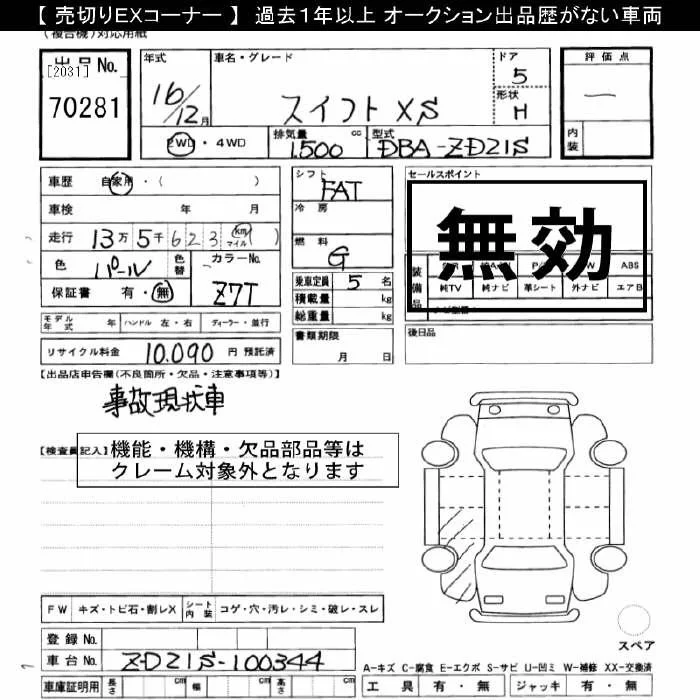 【 売切りEXコーナー 】 過去1年以上 オークション出品歴がない車両
(複合機)対応用紙
出品No. 年式 車名・グレード ドア 評価点
[2031] 5
70281 16/12月 スイフト XS 形状 H 一
2WD・4WD 排気量 1,500 cc 型式 DBA-ZD21S 内装
車歴 自家用・( ) シフト FAT セールスポイント
車検 年 月 冷房
走行 13万5千623 km マイル ( ) 無効
燃料 G
色 パール 色替 カラーNo. Z7T 装備品 ABS
保証書 有・無 乗車定員 5名 純TV 純ナビ 革シート 外ナビ エアB
積載量 kg
モデル年式 年 ハンドル 左・右 ディーラー・並行 総重量 kg
書類期限 後日品
リサイクル料金 10,090 円 預託済 月 日
【出品店申告欄(不良箇所・欠品・注意事項等)】
事故現状車
【検査員記入】 機能・機構・欠品部品等は
クレーム対象外となります
FW キズ・トビ石・割レX シート内装 コゲ・穴・汚レ・シミ・破レ・スレ
登録No. スペア
車台No. ZD21S-100344 A-キズ C-腐食 E-エクボ S-サビ U-凹ミ W-補修 XX-交換済
車庫証明用 長さ cm 幅 cm 高さ cm 工具 有・無 ジャッキ 有・無